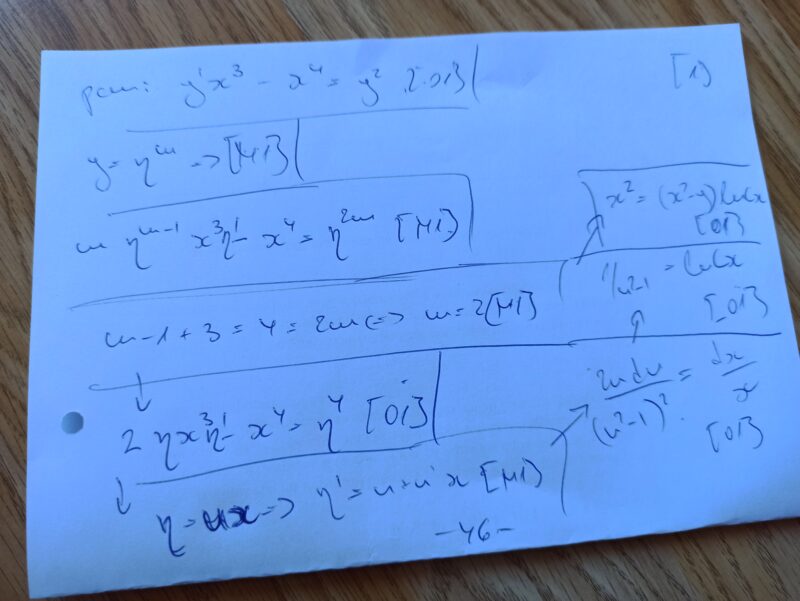 y'x³ - x⁴ = y² [01] [1]
y = η^m => [M1]
m η^{m-1} x³η' - x⁴ = η^{2m} [M1]
m-1+3 = 4 = 2m <=> m = 2 [M1]
↓
2 ηx³η' - x⁴ = η⁴ [01]
↓ η = ux => η' = u + u'x [M1]
2u du/(u²-1)² = dx/x
[01]
1/u²-1 = ln Cx
[01]
x² = (x²-y) ln Cx
[01]
-46-